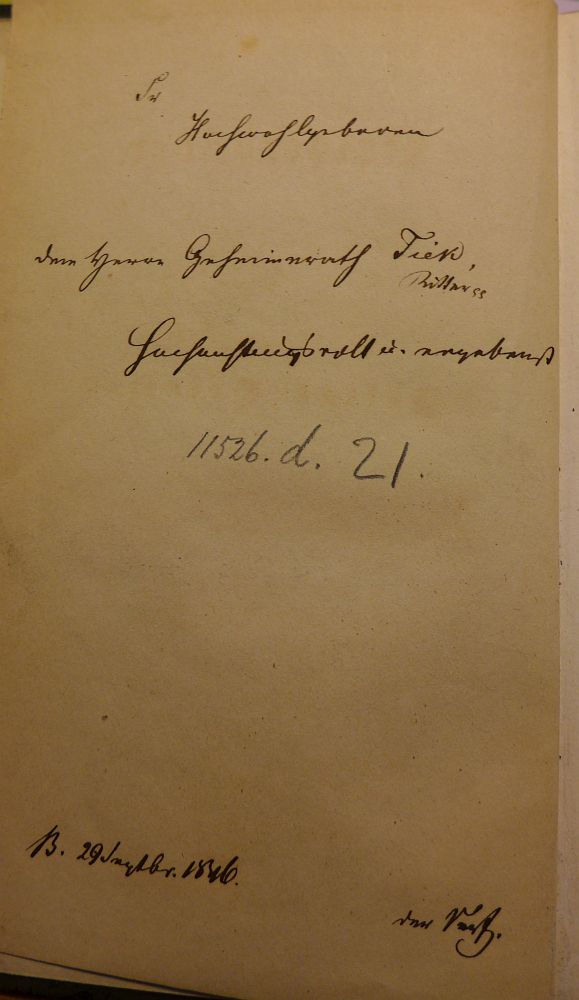 Sr
Hochwohlgeboren
dem Herrn Geheimerath Tiek,
Ritter pp
Hochachtungsvoll u. ergebenst
11526. d. 21.
B. 29 Septbr. 1846.
der Verf.